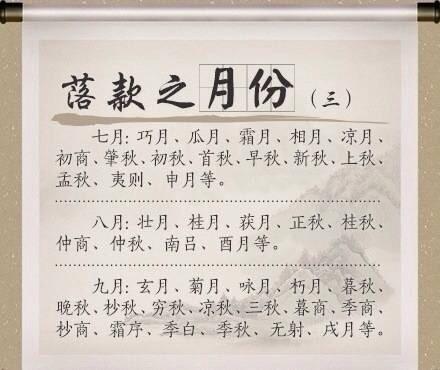 落款之月份（三）
七月：巧月、瓜月、霜月、相月、凉月、
初商、肇秋、初秋、首秋、早秋、新秋、上秋、
孟秋、夷则、申月等。
八月：壮月、桂月、获月、正秋、桂秋、
仲商、仲秋、南吕、酉月等。
九月：玄月、菊月、咏月、朽月、暮秋、
晚秋、杪秋、穷秋、凉秋、三秋、暮商、季商、
杪商、霜序、季白、季秋、无射、戌月等。